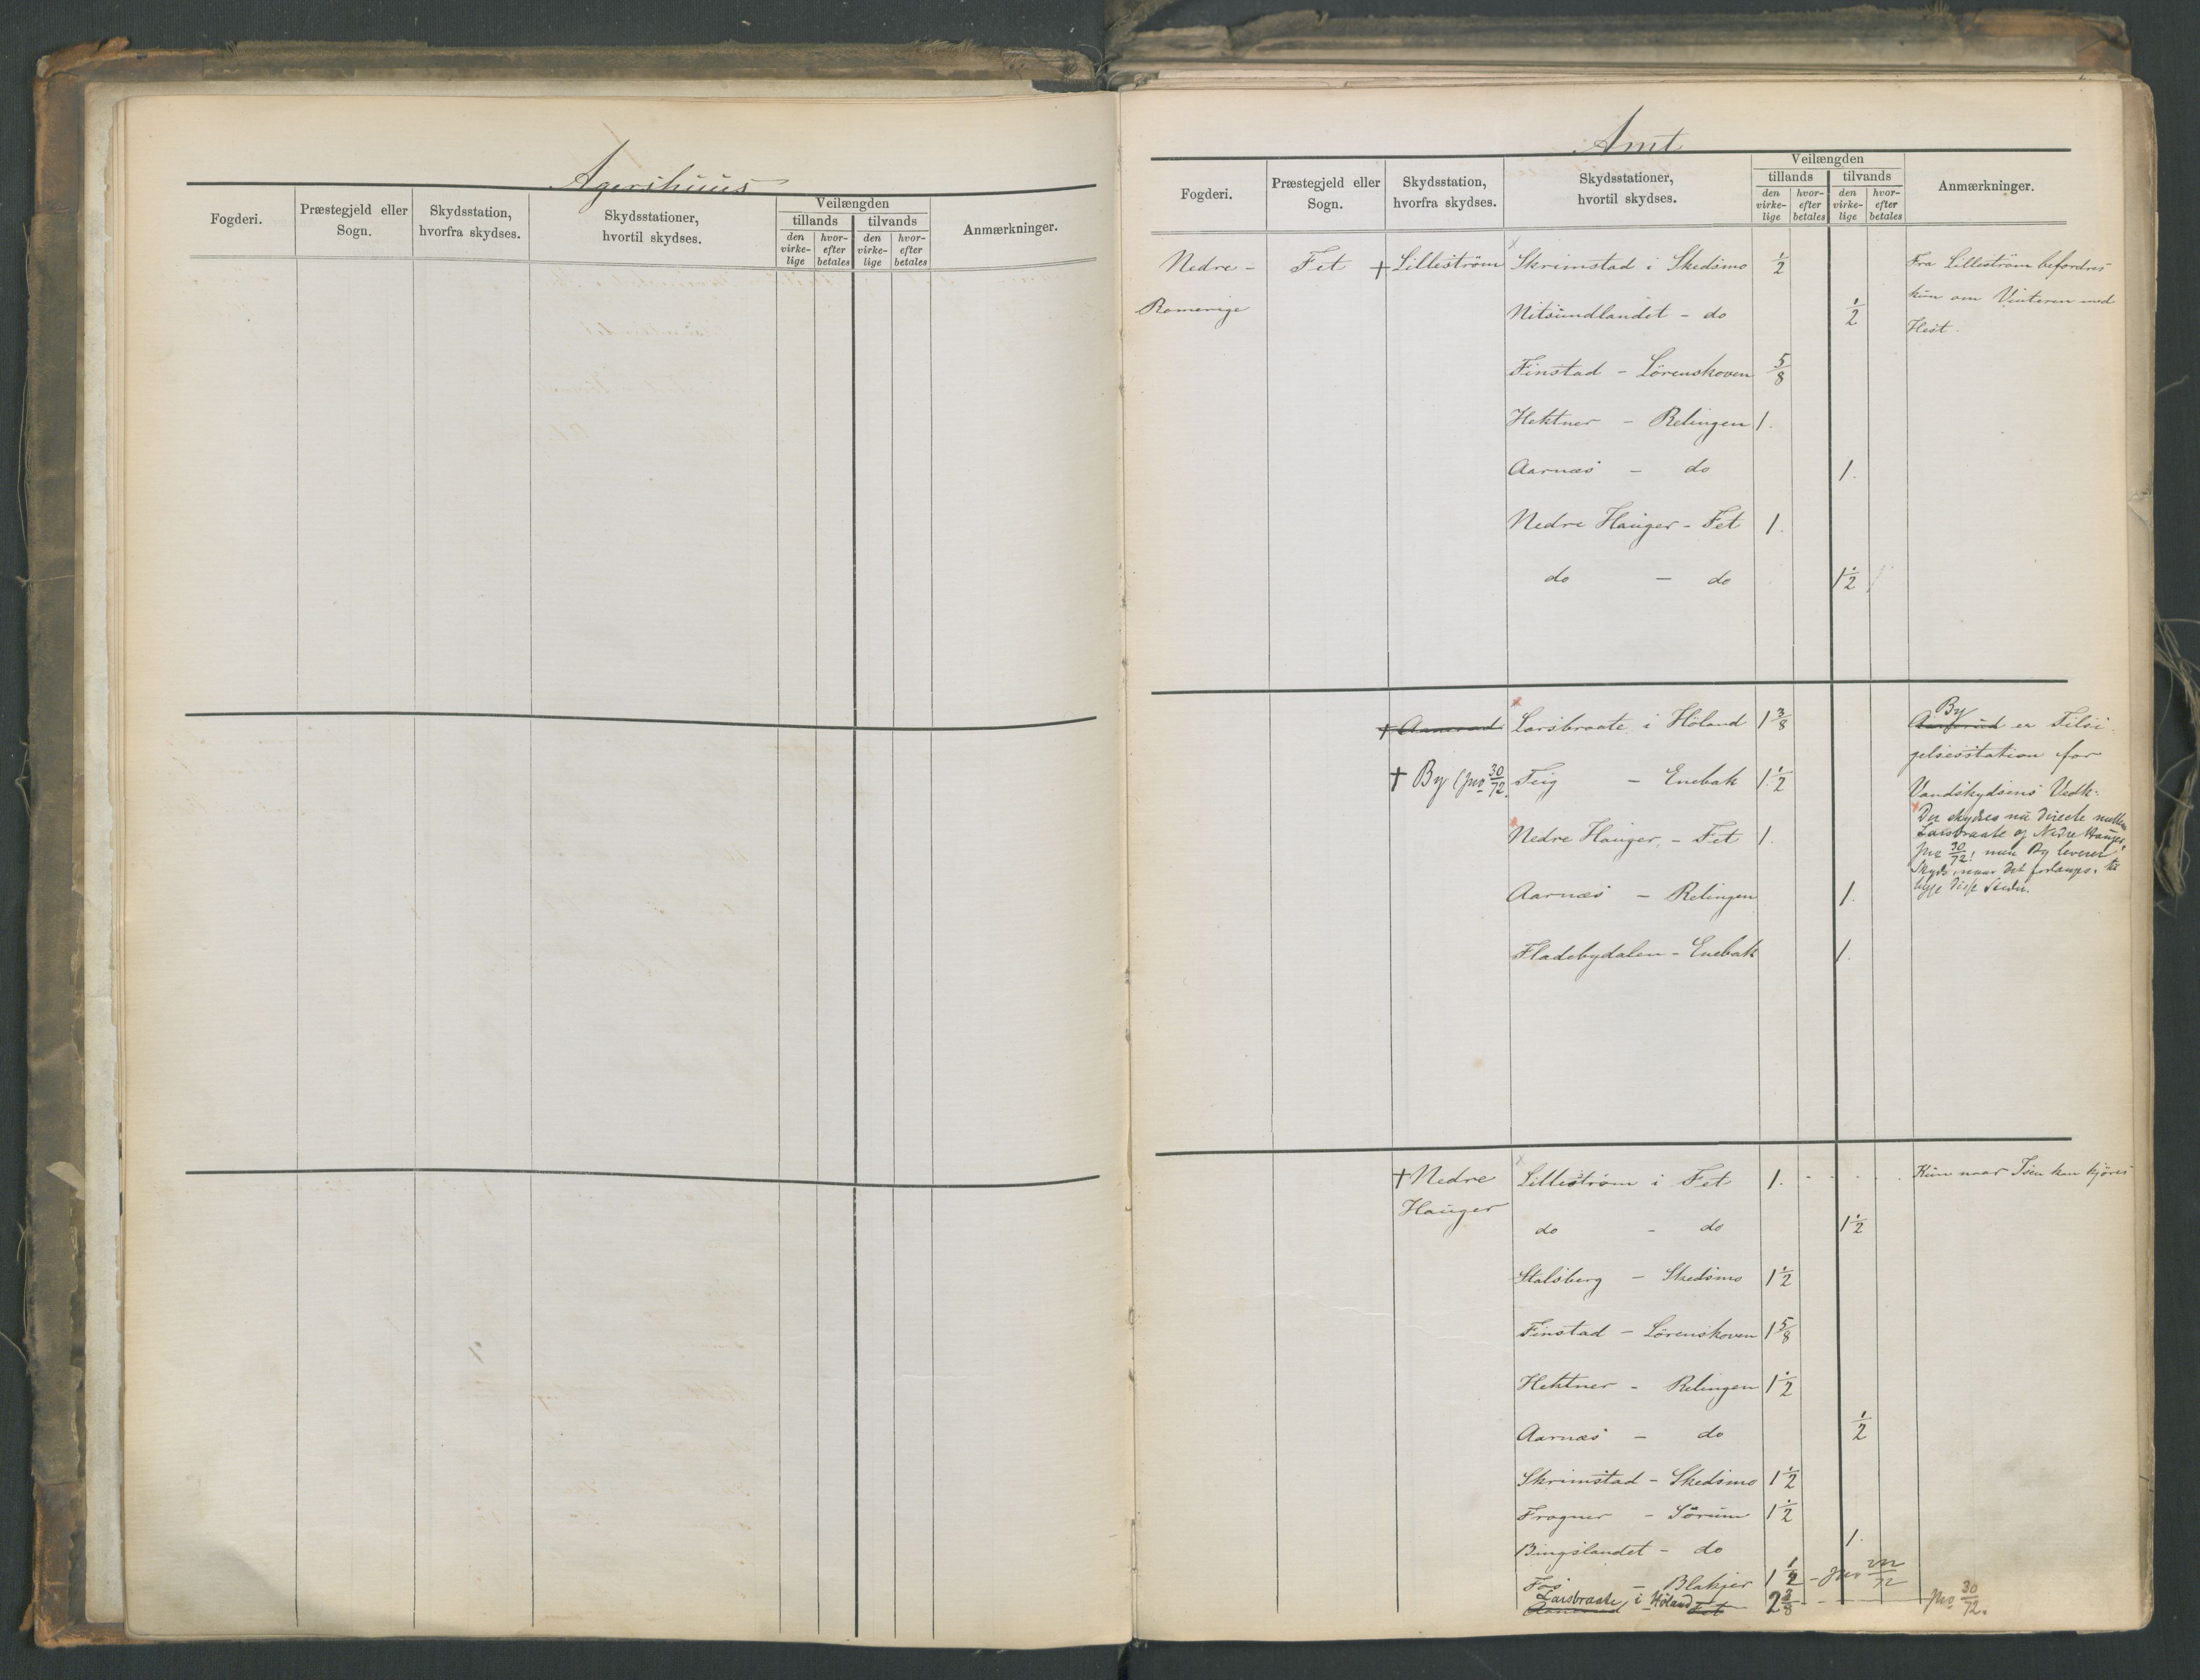 Agershuus
Fogderi.
Præstegjeld eller
Sogn.
Skydsstation,
hvorfra skydses.
Skydsstationer,
hvortil skydses.
Veilængden
tillands
tilvands
den
virke-
lige
hvor-
efter
betales
den
virke-
lige
hvor-
efter
betales
Anmærkninger.
Amt
Fogderi.
Præstegjeld eller
Sogn.
Skydsstation,
hvorfra skydses.
Skydsstationer,
hvortil skydses.
Veilængden
tillands
tilvands
den
virke-
lige
hvor-
efter
betales
den
virke-
lige
hvor-
efter
betales
Anmærkninger.
Nedre - Fet + Lilleström Skrimstad i Skedsmo 1/2 Fra Lilleström befordres
Romerige Nitsundlandet - do 1/2 kun om Vinteren med
Hest.
Finstad - Lörenskoven 5/8
Hektner - Relingen 1.
Aarnæs - do 1.
Nedre Hauger - Fet 1.
do - do 1 1/2
+ Aamerud Larsbraate i Höland 1 3/8 By
er Tilsi-
gelsesstation for
+ By (Jno 30/72. Teig - Enebak 1 1/2 Vandskydsens Vedk.
Nedre Hauger, - Fet 1. Der skydses nu directe mellem
Larsbraate og Nedre Hauger,
Jno 30/72, men By leverer
Skyds, naar det forlanges, til
begge disse Steder.
Aarnæs - Relingen 1.
Fladebydalen - Enebak 1.
+ Nedre Lilleström i Fet 1. Kun naar Isen kan kjöres
Hauger do - do 1 1/2
Stalsberg - Skedsmo 1 1/2
Finstad - Lörenskoven 1 5/8
Hektner - Relingen 1 1/2
Aarnæs - do 1/2
Skrimstad - Skedsmo 1 1/2
Frogner - Sörum 1 1/2
Bingslandet - do 1.
Fos - Blakjer 1 1/2 - Jno
Larsbraate i Höland 2 3/8 - Jno 30/72.
Aamerud Fet